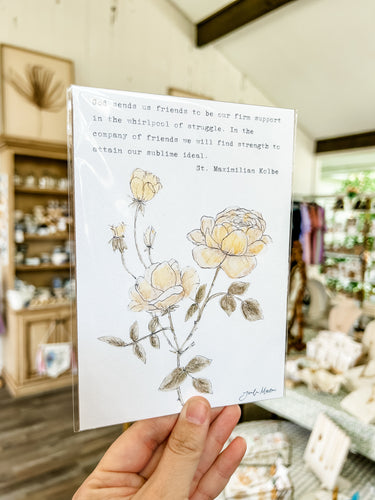 God sends us friends to be our firm support
in the whirlpool of struggle. In the
company of friends we will find strength to
attain our sublime ideal.
St. Maximilian Kolbe